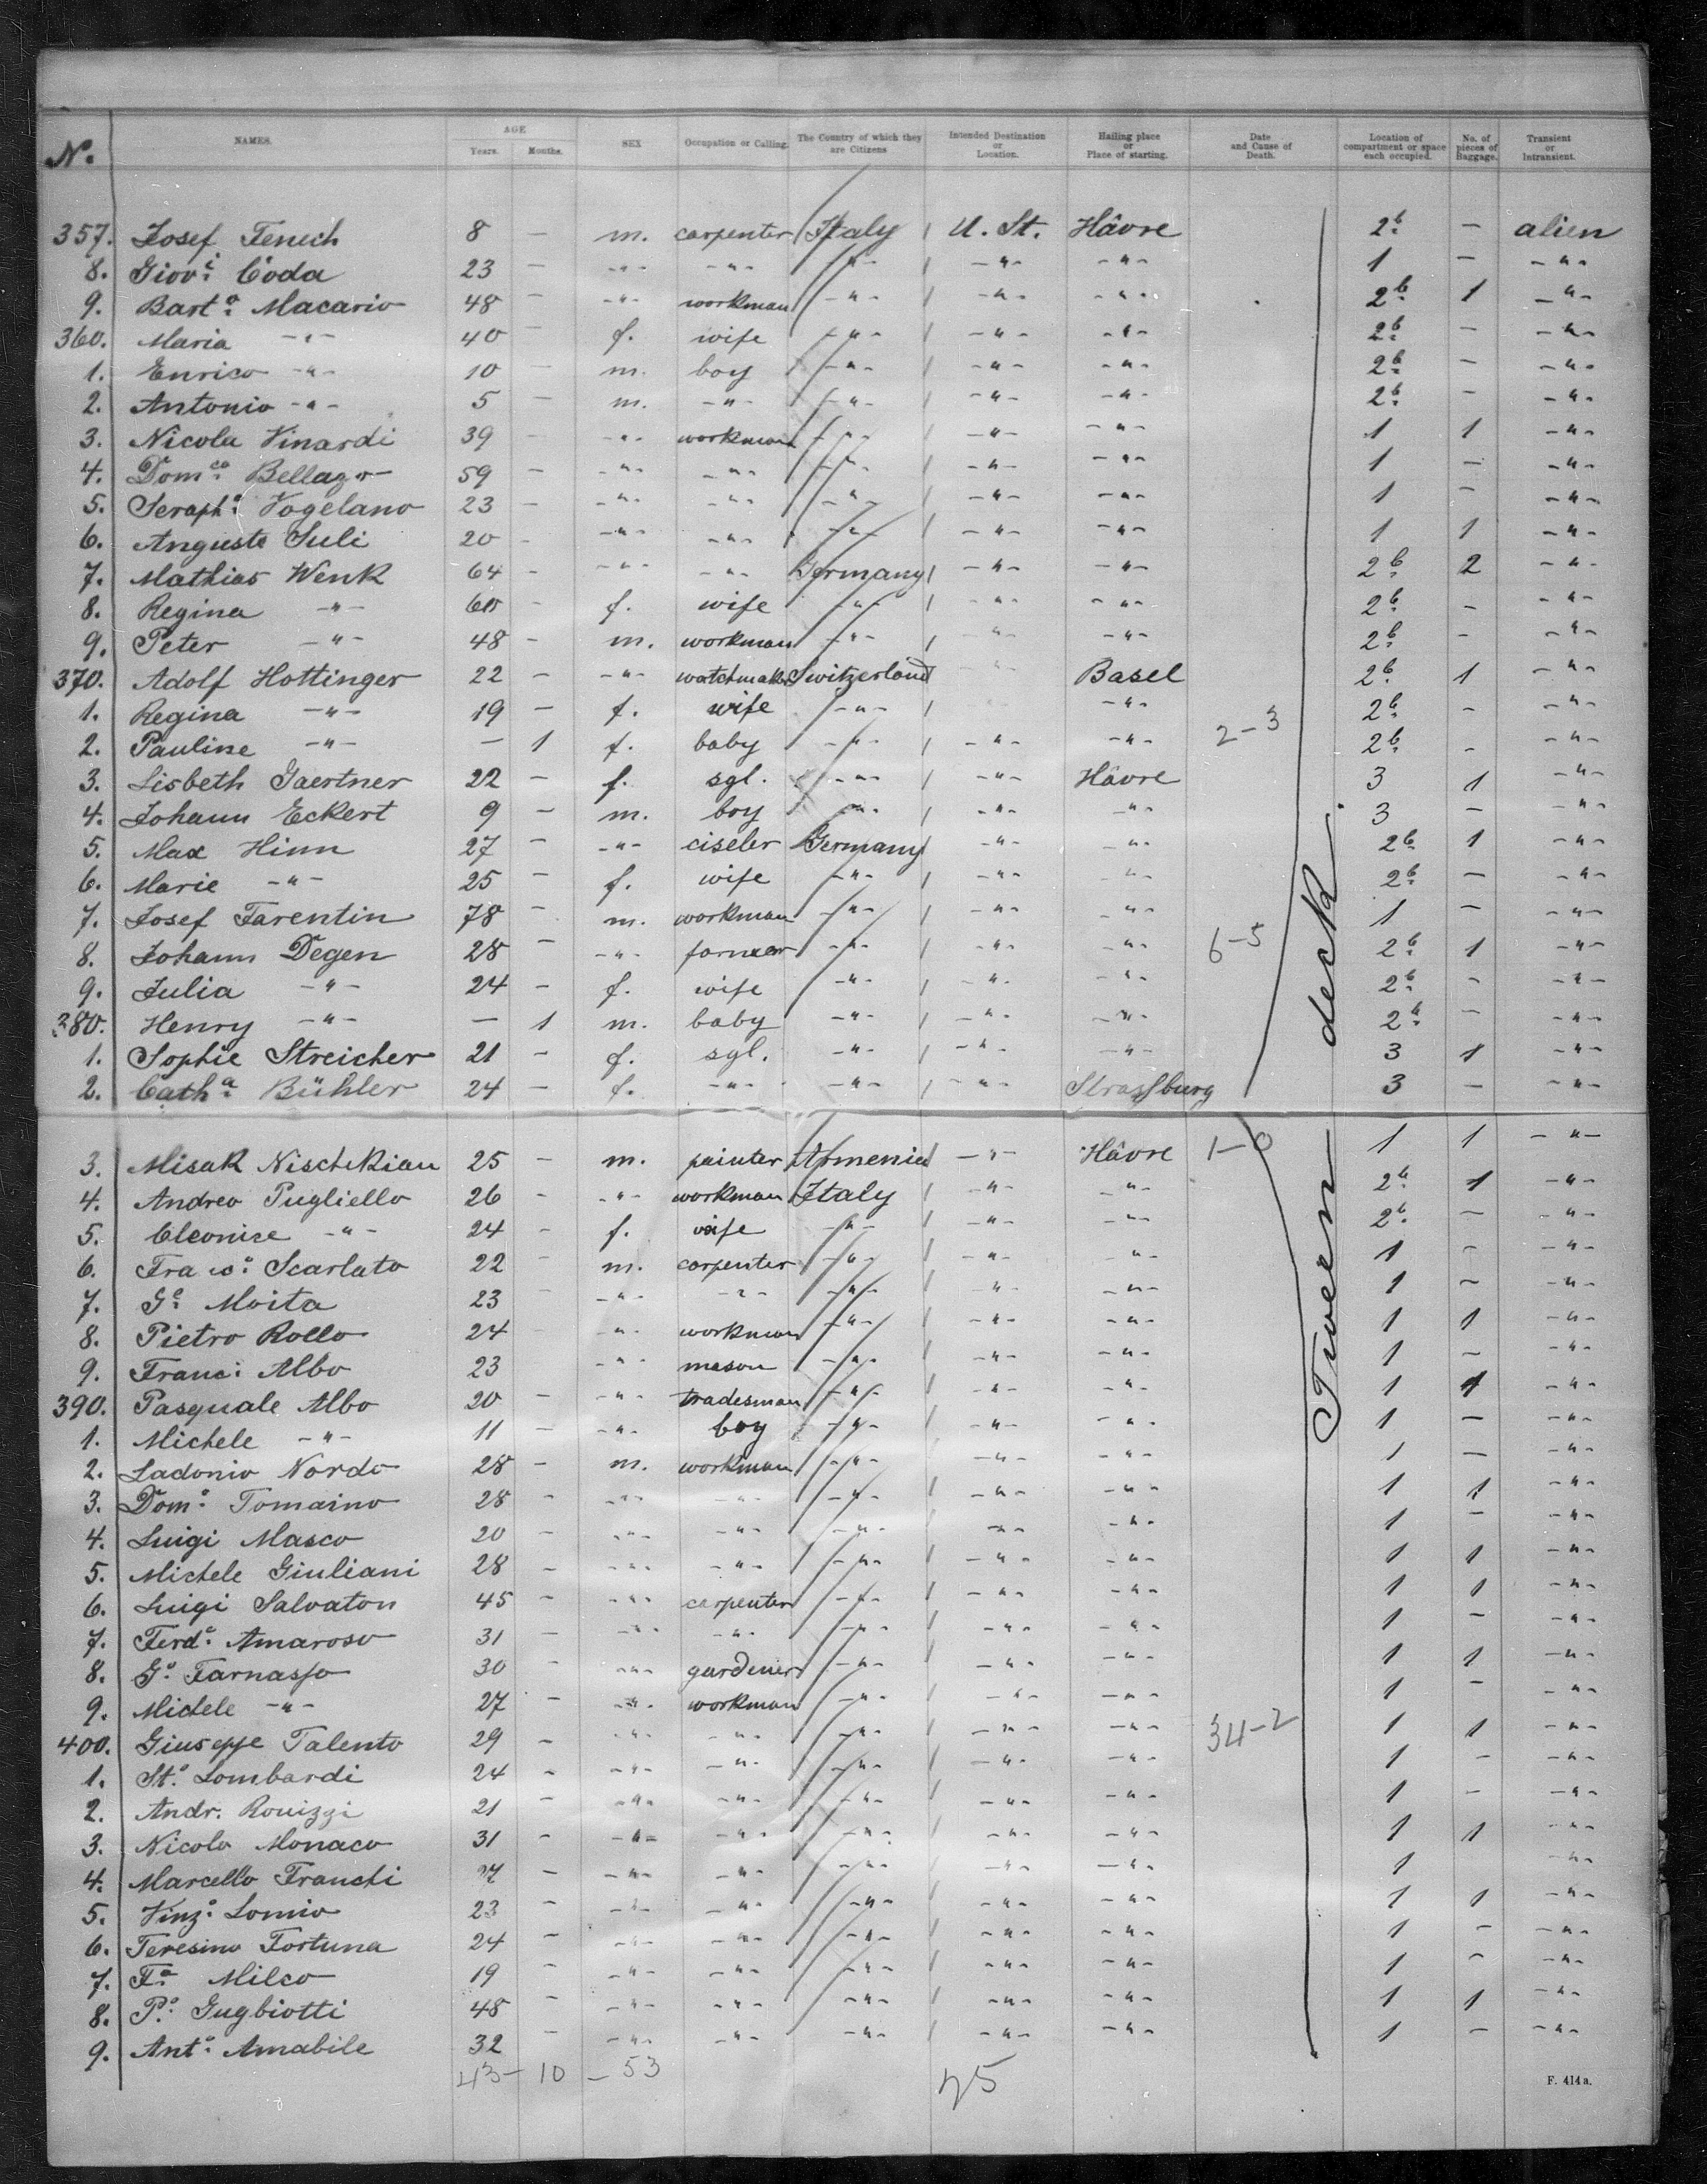 N. NAMES. AGE Years. Months. SEX Occupation or Calling. The Country of which they are Citizens Intended Destination or Location. Hailing place or Place of starting. Date and Cause of Death. Location of compartment or space each occupied. No. of pieces of Baggage. Transient or Intransient.
357. Josef Fenech 8 – m. carpenter Italy U. St. Hâvre 2b – alien
8. Giovi Coda 23 – -"- -"- -"- -"- -"- 1 – -"-
9. Barta Macario 48 – -"- workman -"- -"- -"- 2b 1 -"-
360. Maria -"- 40 – f. wife -"- -"- -"- 2b – -"-
1. Enrico -"- 10 – m. boy -"- -"- -"- 2b – -"-
2. Antonio -"- 5 – m. -"- -"- -"- -"- 2b – -"-
3. Nicola Vinardi 39 – -"- workman -"- -"- -"- 1 1 -"-
4. Domco Bellazo 59 – -"- -"- -"- -"- -"- 1 – -"-
5. Seapho Vogelano 23 – -"- -"- -"- -"- -"- 1 – -"-
6. Anguste Suli 20 – -"- -"- -"- -"- -"- 1 1 -"-
7. Mathias Wenk 64 – -"- -"- Germany -"- -"- 2b 2 -"-
8. Regina -"- 60 – f. wife -"- -"- -"- 2b – -"-
9. Peter -"- 48 – m. workman -"- -"- -"- 2b – -"-
370. Adolf Hottinger 22 – -"- watchmaker Switzerland -"- Basel 2b 1 -"-
1. Regina -"- 19 – f. wife -"- -"- 2b – -"-
2. Pauline -"- – 1 f. baby -"- -"- -"- 2-3 2b – -"-
3. Lisbeth Gaertner 22 – f. sgl. -"- -"- Hâvre 3 1 -"-
4. Johann Eckert 9 – m. boy -"- -"- -"- 3 – -"-
5. Max Hinn 27 – -"- ciseler Germany -"- -"- 2b 1 -"-
6. Marie -"- 25 – f. wife -"- -"- -"- 2b – -"-
7. Josef Tarentin 78 – m. workman -"- -"- -"- 1 – -"-
8. Johann Degen 28 – -"- farmer -"- -"- -"- 6-5 2b 1 -"-
9. Julia -"- 24 – f. wife -"- -"- -"- 2b – -"-
380. Henry -"- – 1 m. baby -"- -"- -"- 2b – -"-
1. Sophie Streicher 21 – f. sgl. -"- -"- -"- 3 1 -"-
2. Catha Bühler 24 – f. -"- -"- -"- Strassburg 3 – -"-
3. Misak Nischkian 25 – m. painter Armenia -"- Hâvre 1-0 1 1 -"-
4. Andreo Pugliello 26 – -"- workman Italy -"- -"- 2b 1 -"-
5. Cleonice -"- 24 – f. wife -"- -"- -"- 2b – -"-
6. Franco Scarlato 22 – m. carpenter -"- -"- -"- 1 – -"-
7. Ge Moita 23 – -"- -"- -"- -"- -"- 1 – -"-
8. Pietro Rollo 24 – -"- workman -"- -"- -"- 1 1 -"-
9. Franc: Albo 23 -"- mason -"- -"- -"- 1 – -"-
390. Pasquale Albo 20 – -"- tradesman -"- -"- -"- 1 1 -"-
1. Michele -"- 11 – -"- boy -"- -"- -"- 1 – -"-
2. Ladonio Nordo 28 – m. workman -"- -"- -"- 1 – -"-
3. Domo Tomaino 28 – -"- -"- -"- -"- -"- 1 1 -"-
4. Luigi Masco 20 – -"- -"- -"- -"- -"- 1 – -"-
5. Michele Giuliani 28 – -"- -"- -"- -"- -"- 1 1 -"-
6. Luigi Salvaton 45 – -"- carpenter -"- -"- -"- 1 1 -"-
7. Ferdo Amaroso 31 – -"- -"- -"- -"- -"- 1 – -"-
8. Go Tarnasso 30 – -"- gardener -"- -"- -"- 1 1 -"-
9. Michele -"- 27 – -"- workman -"- -"- -"- 1 – -"-
400. Giuseppe Talento 29 – -"- -"- -"- -"- -"- 34-2 1 1 -"-
1. Sto Lombardi 24 – -"- -"- -"- -"- -"- 1 – -"-
2. Andr. Rouizzi 21 – -"- -"- -"- -"- -"- 1 – -"-
3. Nicolo Monaco 31 – -"- -"- -"- -"- -"- 1 1 -"-
4. Marcello Franchi – -"- -"- -"- -"- -"- 1 -"-
5. Vinzo Lomio 23 – -"- -"- -"- -"- -"- 1 1 -"-
6. Teresino Fortuna 24 – -"- -"- -"- -"- -"- 1 – -"-
7. Fo Milco 19 – -"- -"- -"- -"- -"- 1 – -"-
8. Po Gugbiotti 48 – -"- -"- -"- -"- -"- 1 1 -"-
9. Anto Amabile 32 – -"- -"- -"- -"- -"- 1 – -"-
43- 10 - 53
75
Tween deck.
F. 414a.